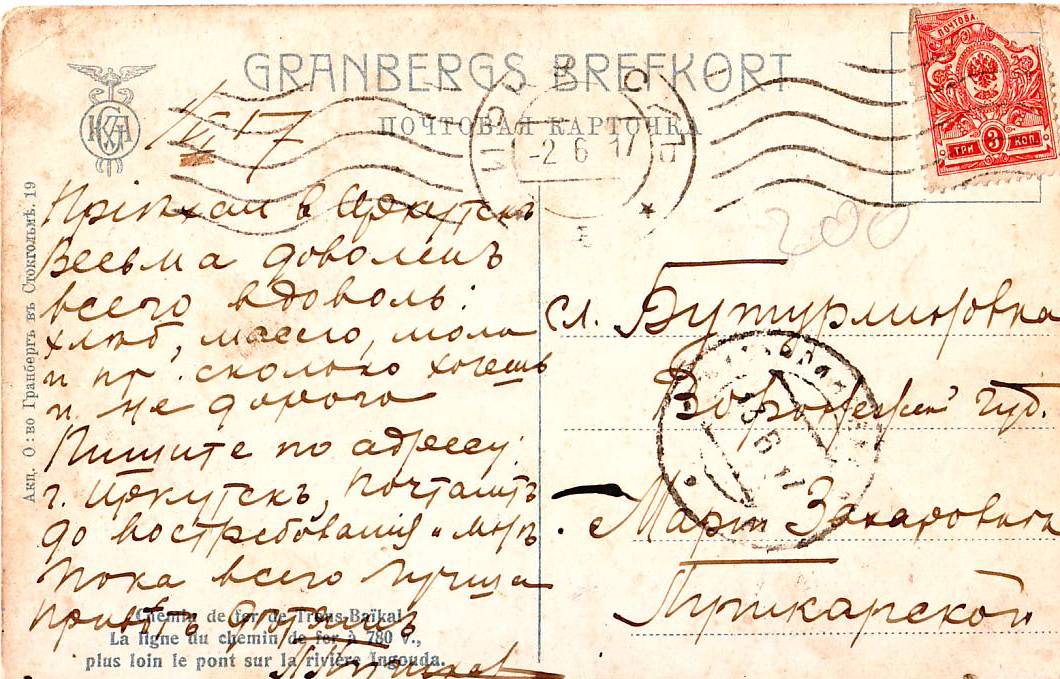 GRANBERGS BREFKORT
ПОЧТОВАЯ КАРТОЧКА
ПОЧТОВА
ТРИ 3 КОП.
-2 6 17
200
Акц. О:во Гранбергъ въ Стокгольмѣ. 19
Пріѣхал в Иркутскъ
Весьма доволенъ
всего вдоволь:
хлѣб, масло, мола
и пр. сколько хочешь
и не дорого
Пишите по адресу:
г. Иркутскъ, Почтамтъ
до востребованія мнѣ
Пока всего лучша
привѣтъ
Chemin de fer de Trans-Baïkal
La ligne du chemin de fer à 780 v.,
plus loin le pont sur la rivière Ingouda.
сл. Бутурлиновка
Воронеж. губ.
Марѳ Захаровнѣ
Пушкарской